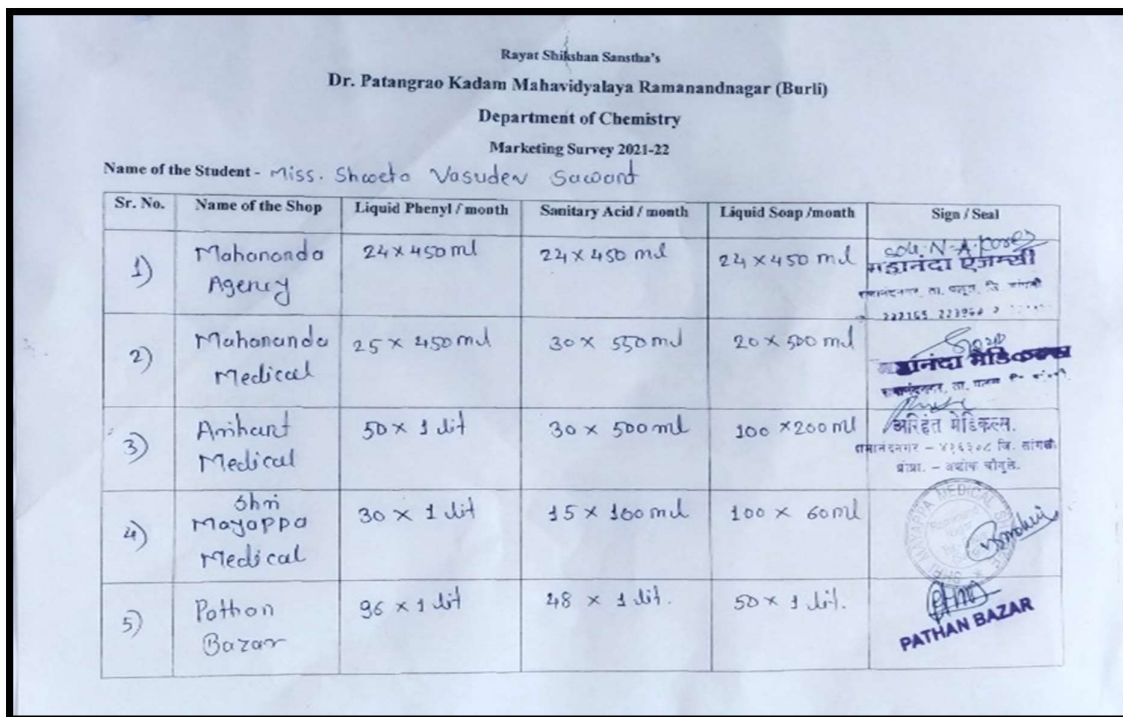 Rayat Shikshan Sanstha's
Dr. Patangrao Kadam Mahavidyalaya Ramanandnagar (Burli)
Department of Chemistry
Marketing Survey 2021-22
Name of the Student - Miss. Shweta Vasudev Sawant
Sr. No. Name of the Shop Liquid Phenyl / month Sanitary Acid / month Liquid Soap /month Sign / Seal
1) Mahananda Agency 24 x 450 ml 22 x 450 ml 24 x 450 ml
महानंदा एजन्सी
2) Mahananda Medical 25 x 450 ml 30 x 550 ml 20 x 500 ml
महानंदा मेडिकल्स
3) Arihant Medical 50 x 1 lit 30 x 500 ml 100 x 200 ml
अरिहंत मेडिकल्स.
रामानंदनगर - ४१६३०८ जि. सांगली
4) Shri Mayappa Medical 30 x 1 lit 15 x 100 ml 100 x 60 ml
5) Pathan Bazar 96 x 1 lit 48 x 1 lit. 50 x 1 lit.
PATHAN BAZAR